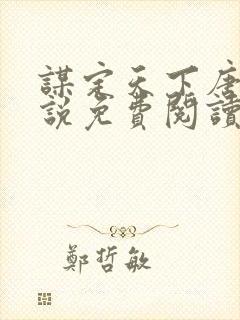 謀定天下唐
說免費閱讀
鄭哲敏